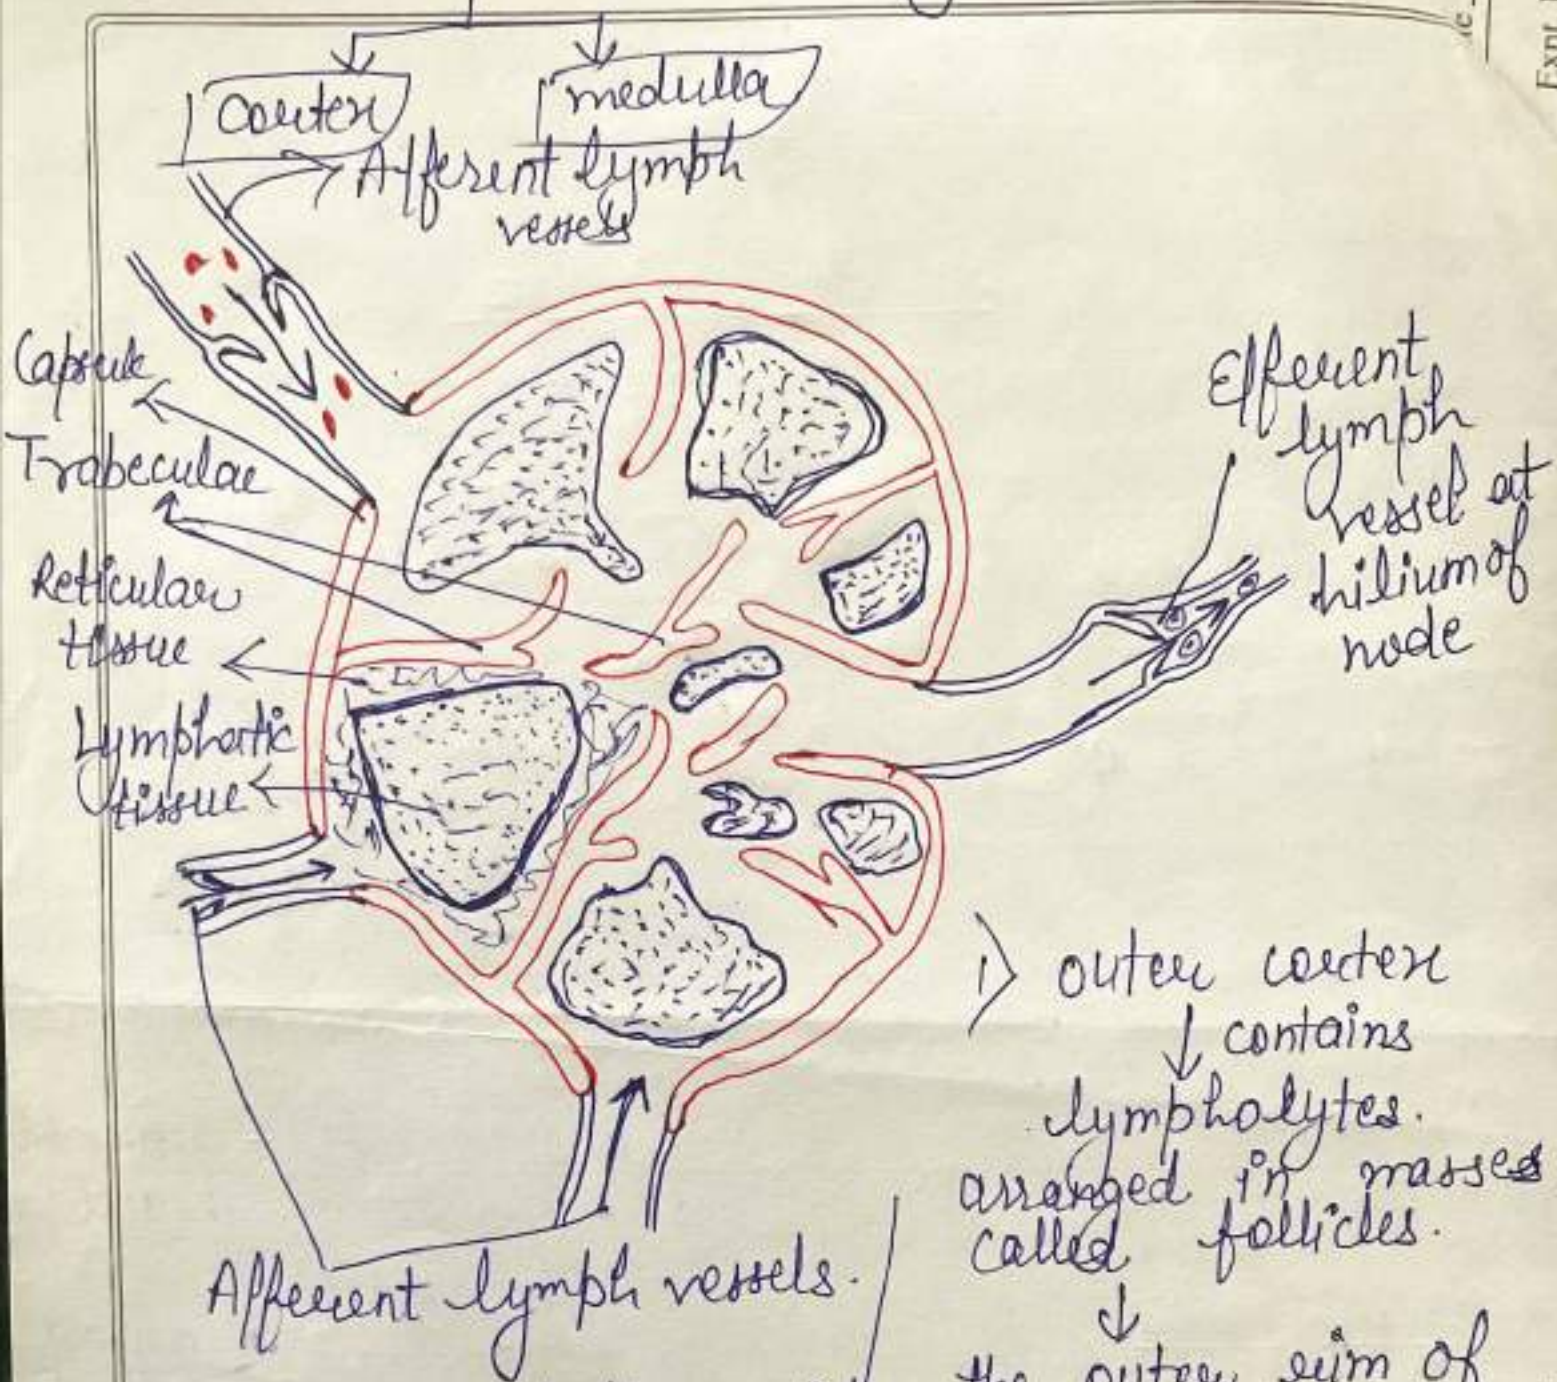 cortex
medulla
Afferent lymph
vessels
Capsule
Trabeculae
Reticular
tissue
Lymphatic
tissue
Efferent
lymph
vessel at
hilium of
node
Afferent lymph vessels.
1) outer cortex
contains
lympholytes.
arranged in masses
called follicles.
the outer rim of
Expt.